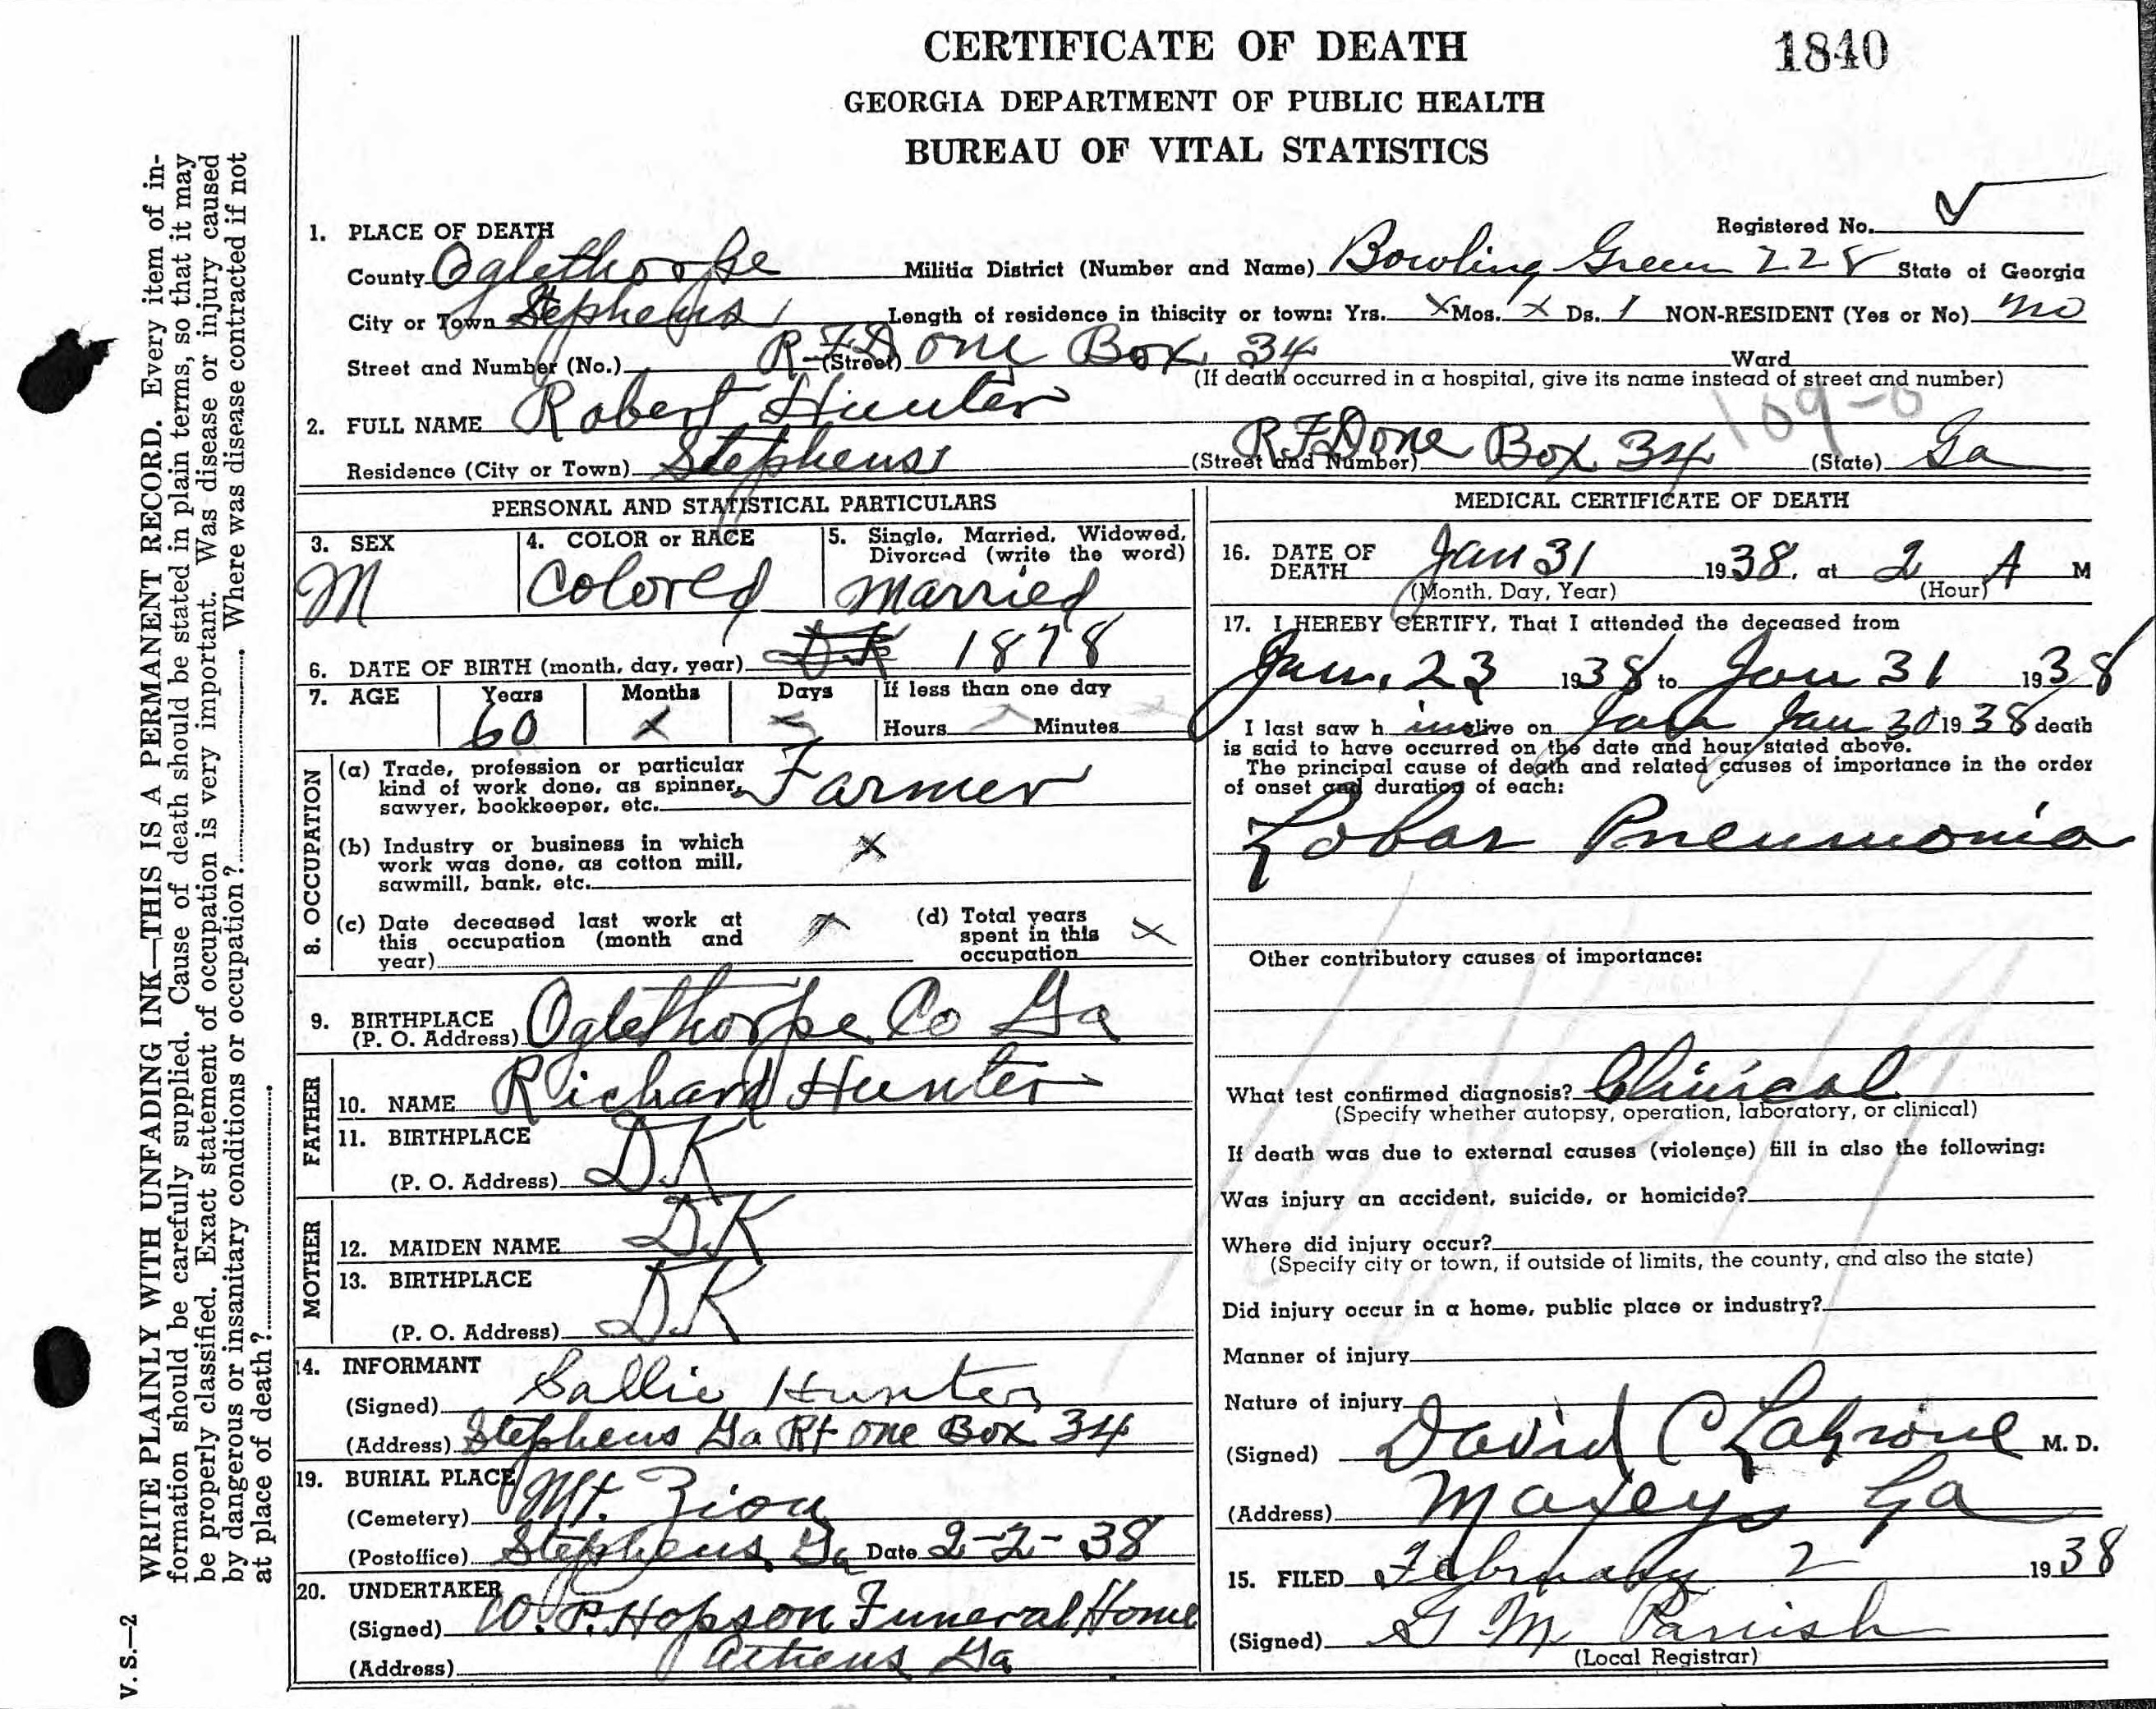 CERTIFICATE OF DEATH
1840
GEORGIA DEPARTMENT OF PUBLIC HEALTH
BUREAU OF VITAL STATISTICS
Registered No.
1. PLACE OF DEATH
County Oglethorpe Militia District (Number and Name) Bowling Green 228 State of Georgia
City or Town Stephens Length of residence in thiscity or town: Yrs. X Mos. X Ds. 1 NON-RESIDENT (Yes or No) no
Street and Number (No.) RFD one Box 34 (Street) Ward
(If death occurred in a hospital, give its name instead of street and number)
109-0
2. FULL NAME Robert Hunter
Residence (City or Town) Stephens RFD one Box 34 (Street and Number) (State) Ga
PERSONAL AND STATISTICAL PARTICULARS
3. SEX M
4. COLOR or RACE Colored
5. Single, Married, Widowed, Divorced (write the word) married
6. DATE OF BIRTH (month, day, year) DK 1878
7. AGE Years 60 Months X Days X If less than one day
Hours Minutes
8. OCCUPATION
(a) Trade, profession or particular
kind of work done, as spinner, Farmer
sawyer, bookkeeper, etc.
(b) Industry or business in which X
work was done, as cotton mill,
sawmill, bank, etc.
(c) Date deceased last work at (d) Total years
this occupation (month and spent in this X
year) occupation
9. BIRTHPLACE Oglethorpe Co Ga
(P. O. Address)
FATHER
10. NAME Richard Hunter
11. BIRTHPLACE
(P. O. Address) DK
MOTHER
12. MAIDEN NAME DK
13. BIRTHPLACE
(P. O. Address) DK
14. INFORMANT
(Signed) Sallie Hunter
(Address) Stephens Ga Rt one Box 34
19. BURIAL PLACE
(Cemetery) Mt. Zion
(Postoffice) Stephens Ga Date 2-2-38
20. UNDERTAKER
(Signed) W. P. Hopson Funeral Home
(Address) Athens Ga
MEDICAL CERTIFICATE OF DEATH
16. DATE OF DEATH Jan 31 1938, at 2 A M
(Month, Day, Year) (Hour)
17. I HEREBY CERTIFY, That I attended the deceased from
Jan. 23 1938 to Jan 31 1938
I last saw h im alive on Jan 30 1938 death
is said to have occurred on the date and hour stated above.
The principal cause of death and related causes of importance in the order
of onset and duration of each:
Lobar Pneumonia
Other contributory causes of importance:
What test confirmed diagnosis? Clinical
(Specify whether autopsy, operation, laboratory, or clinical)
If death was due to external causes (violence) fill in also the following:
Was injury an accident, suicide, or homicide?
Where did injury occur?
(Specify city or town, if outside of limits, the county, and also the state)
Did injury occur in a home, public place or industry?
Manner of injury
Nature of injury
(Signed) David C Lagrone M. D.
(Address) Maxeys Ga
15. FILED February 2 1938
(Signed) G M Parrish
(Local Registrar)
WRITE PLAINLY WITH UNFADING INK—THIS IS A PERMANENT RECORD. Every item of in-
formation should be carefully supplied. Cause of death should be stated in plain terms, so that it may
be properly classified. Exact statement of occupation is very important. Was disease or injury caused
by dangerous or insanitary conditions or occupation? Where was disease contracted if not
at place of death?
V. S.—2